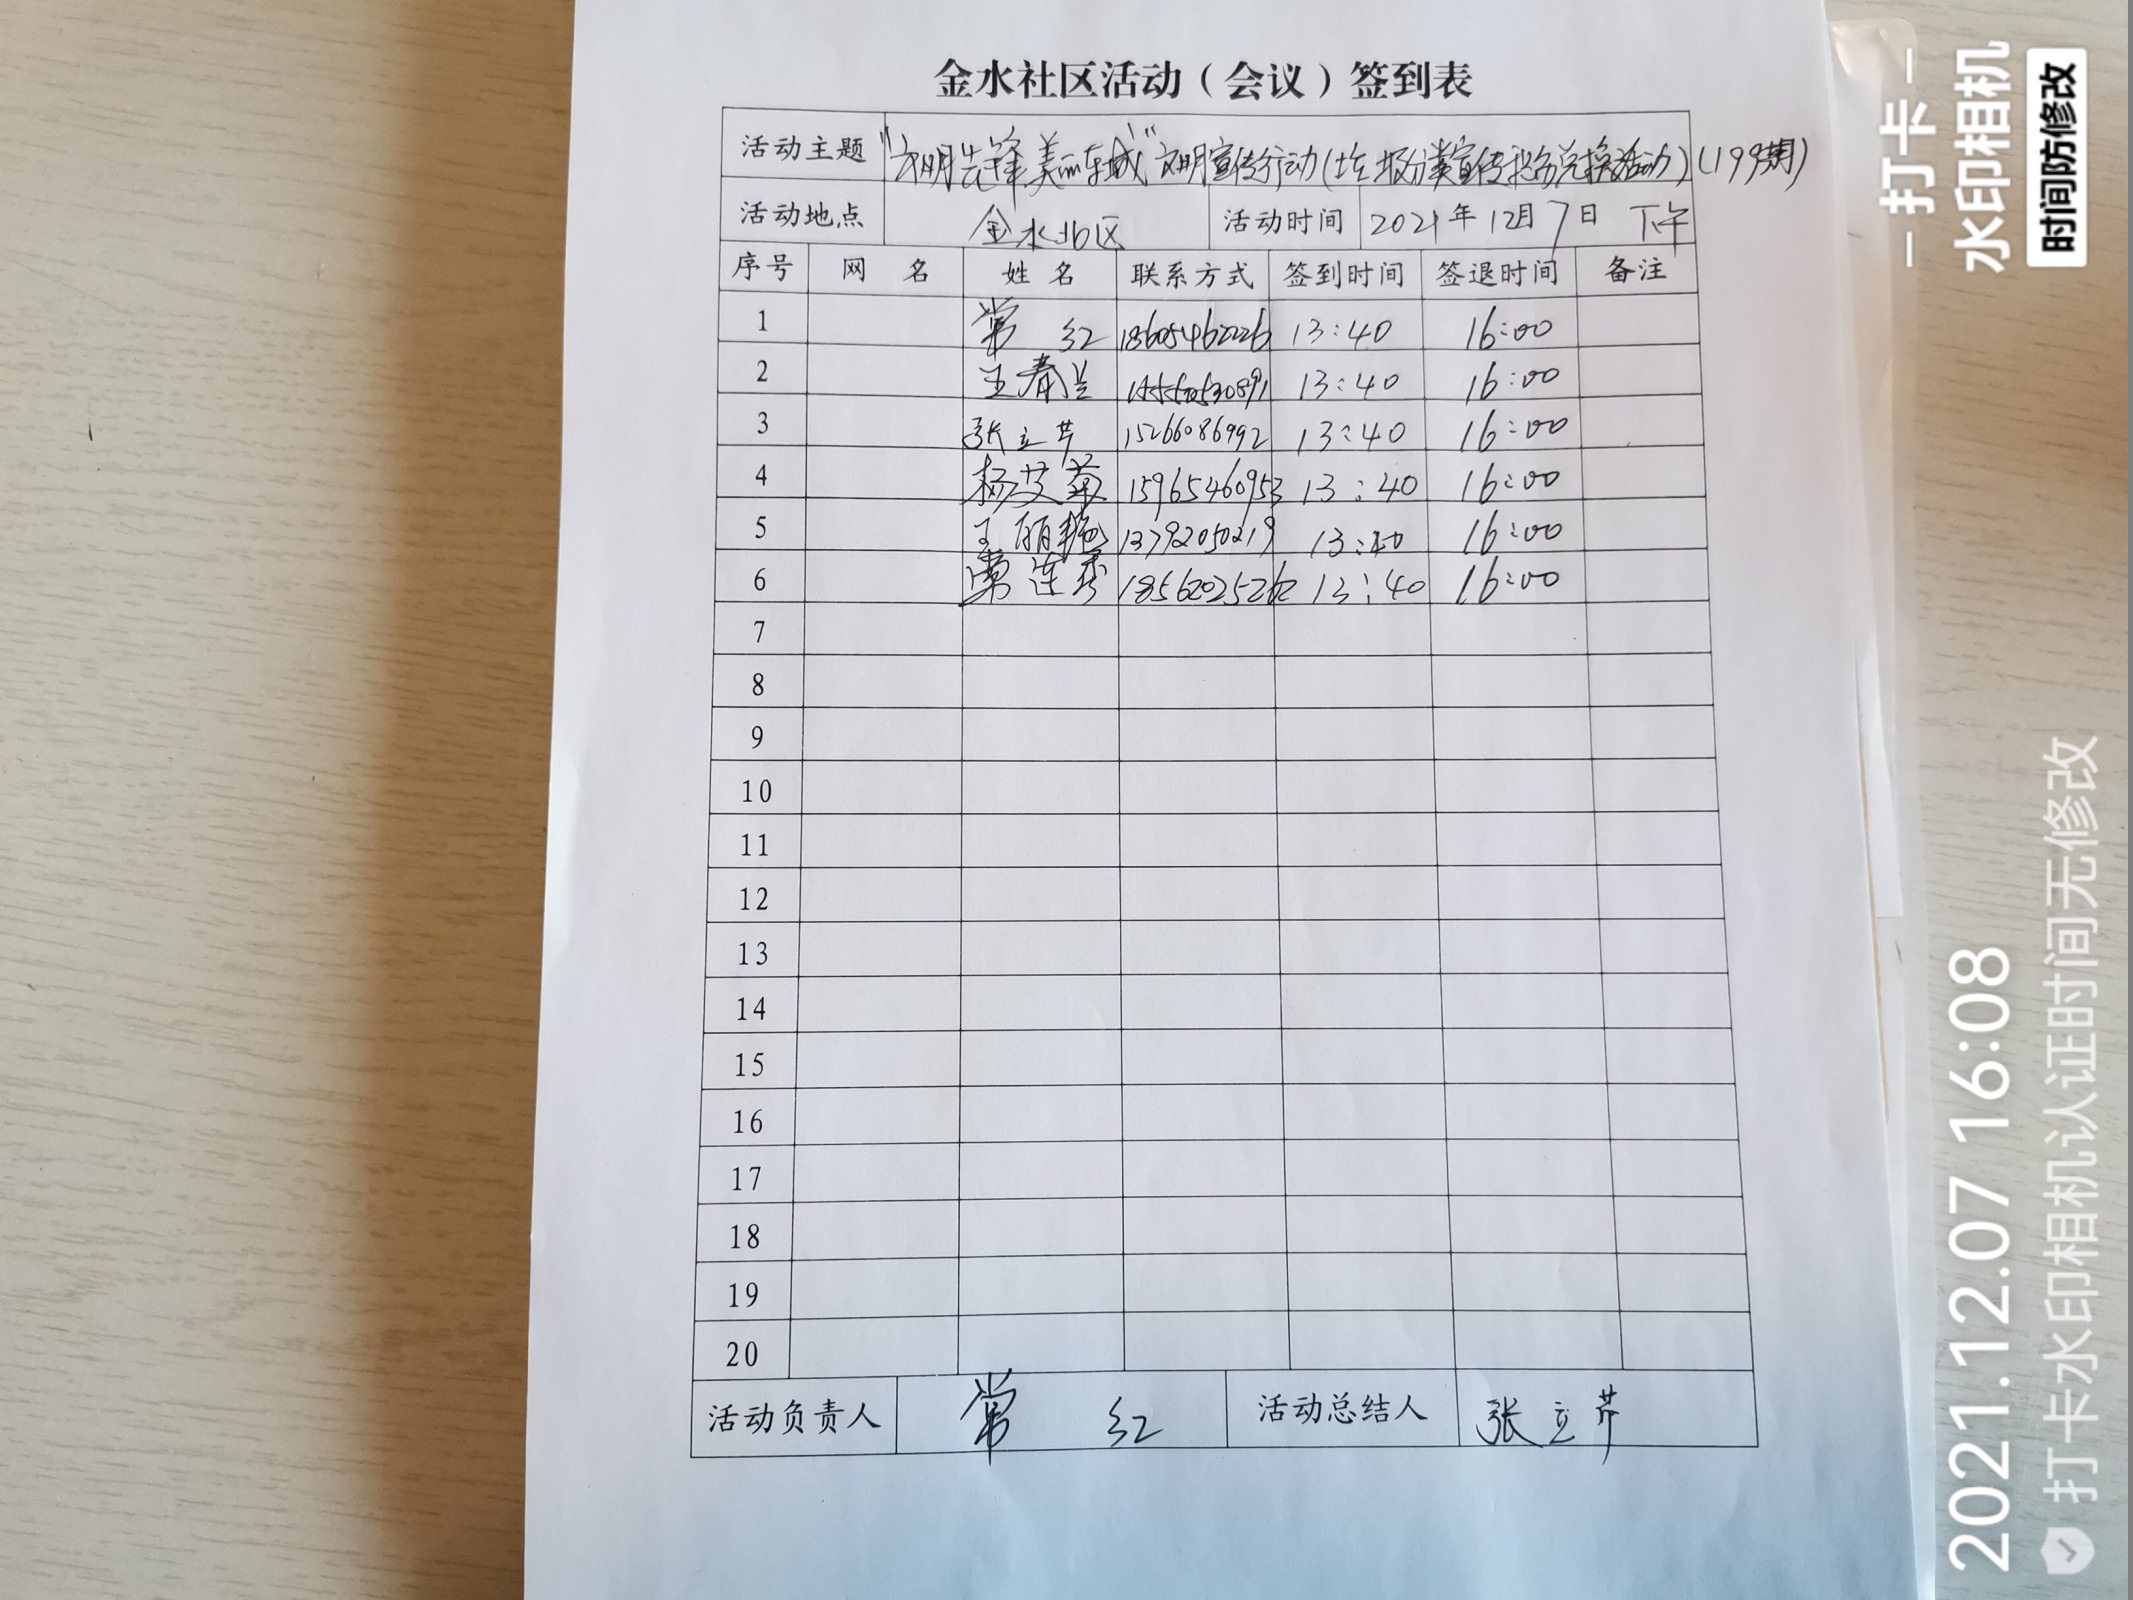 金水社区活动（会议）签到表
活动主题 "文明先锋 美丽东城" 文明宣传行动(垃圾分类宣传积分兑换活动)(199期)
活动地点 金水北区 活动时间 2021年12月7日 下午
序号 网 名 姓 名 联系方式 签到时间 签退时间 备注
1 常 红 18605462226 13:40 16:00
2 王春兰 13:40 16:00
3 张立芹 15266086992 13:40 16:00
4 杨艾菊 15965460953 13:40 16:00
5 王丽艳 13792050219 13:40 16:00
6 常连秀 18562025262 13:40 16:00
7
8
9
10
11
12
13
14
15
16
17
18
19
20
活动负责人 常 红 活动总结人 张立芹
打卡
水印相机
时间防修改
2021.12.07 16:08
打卡水印相机认证时间无修改